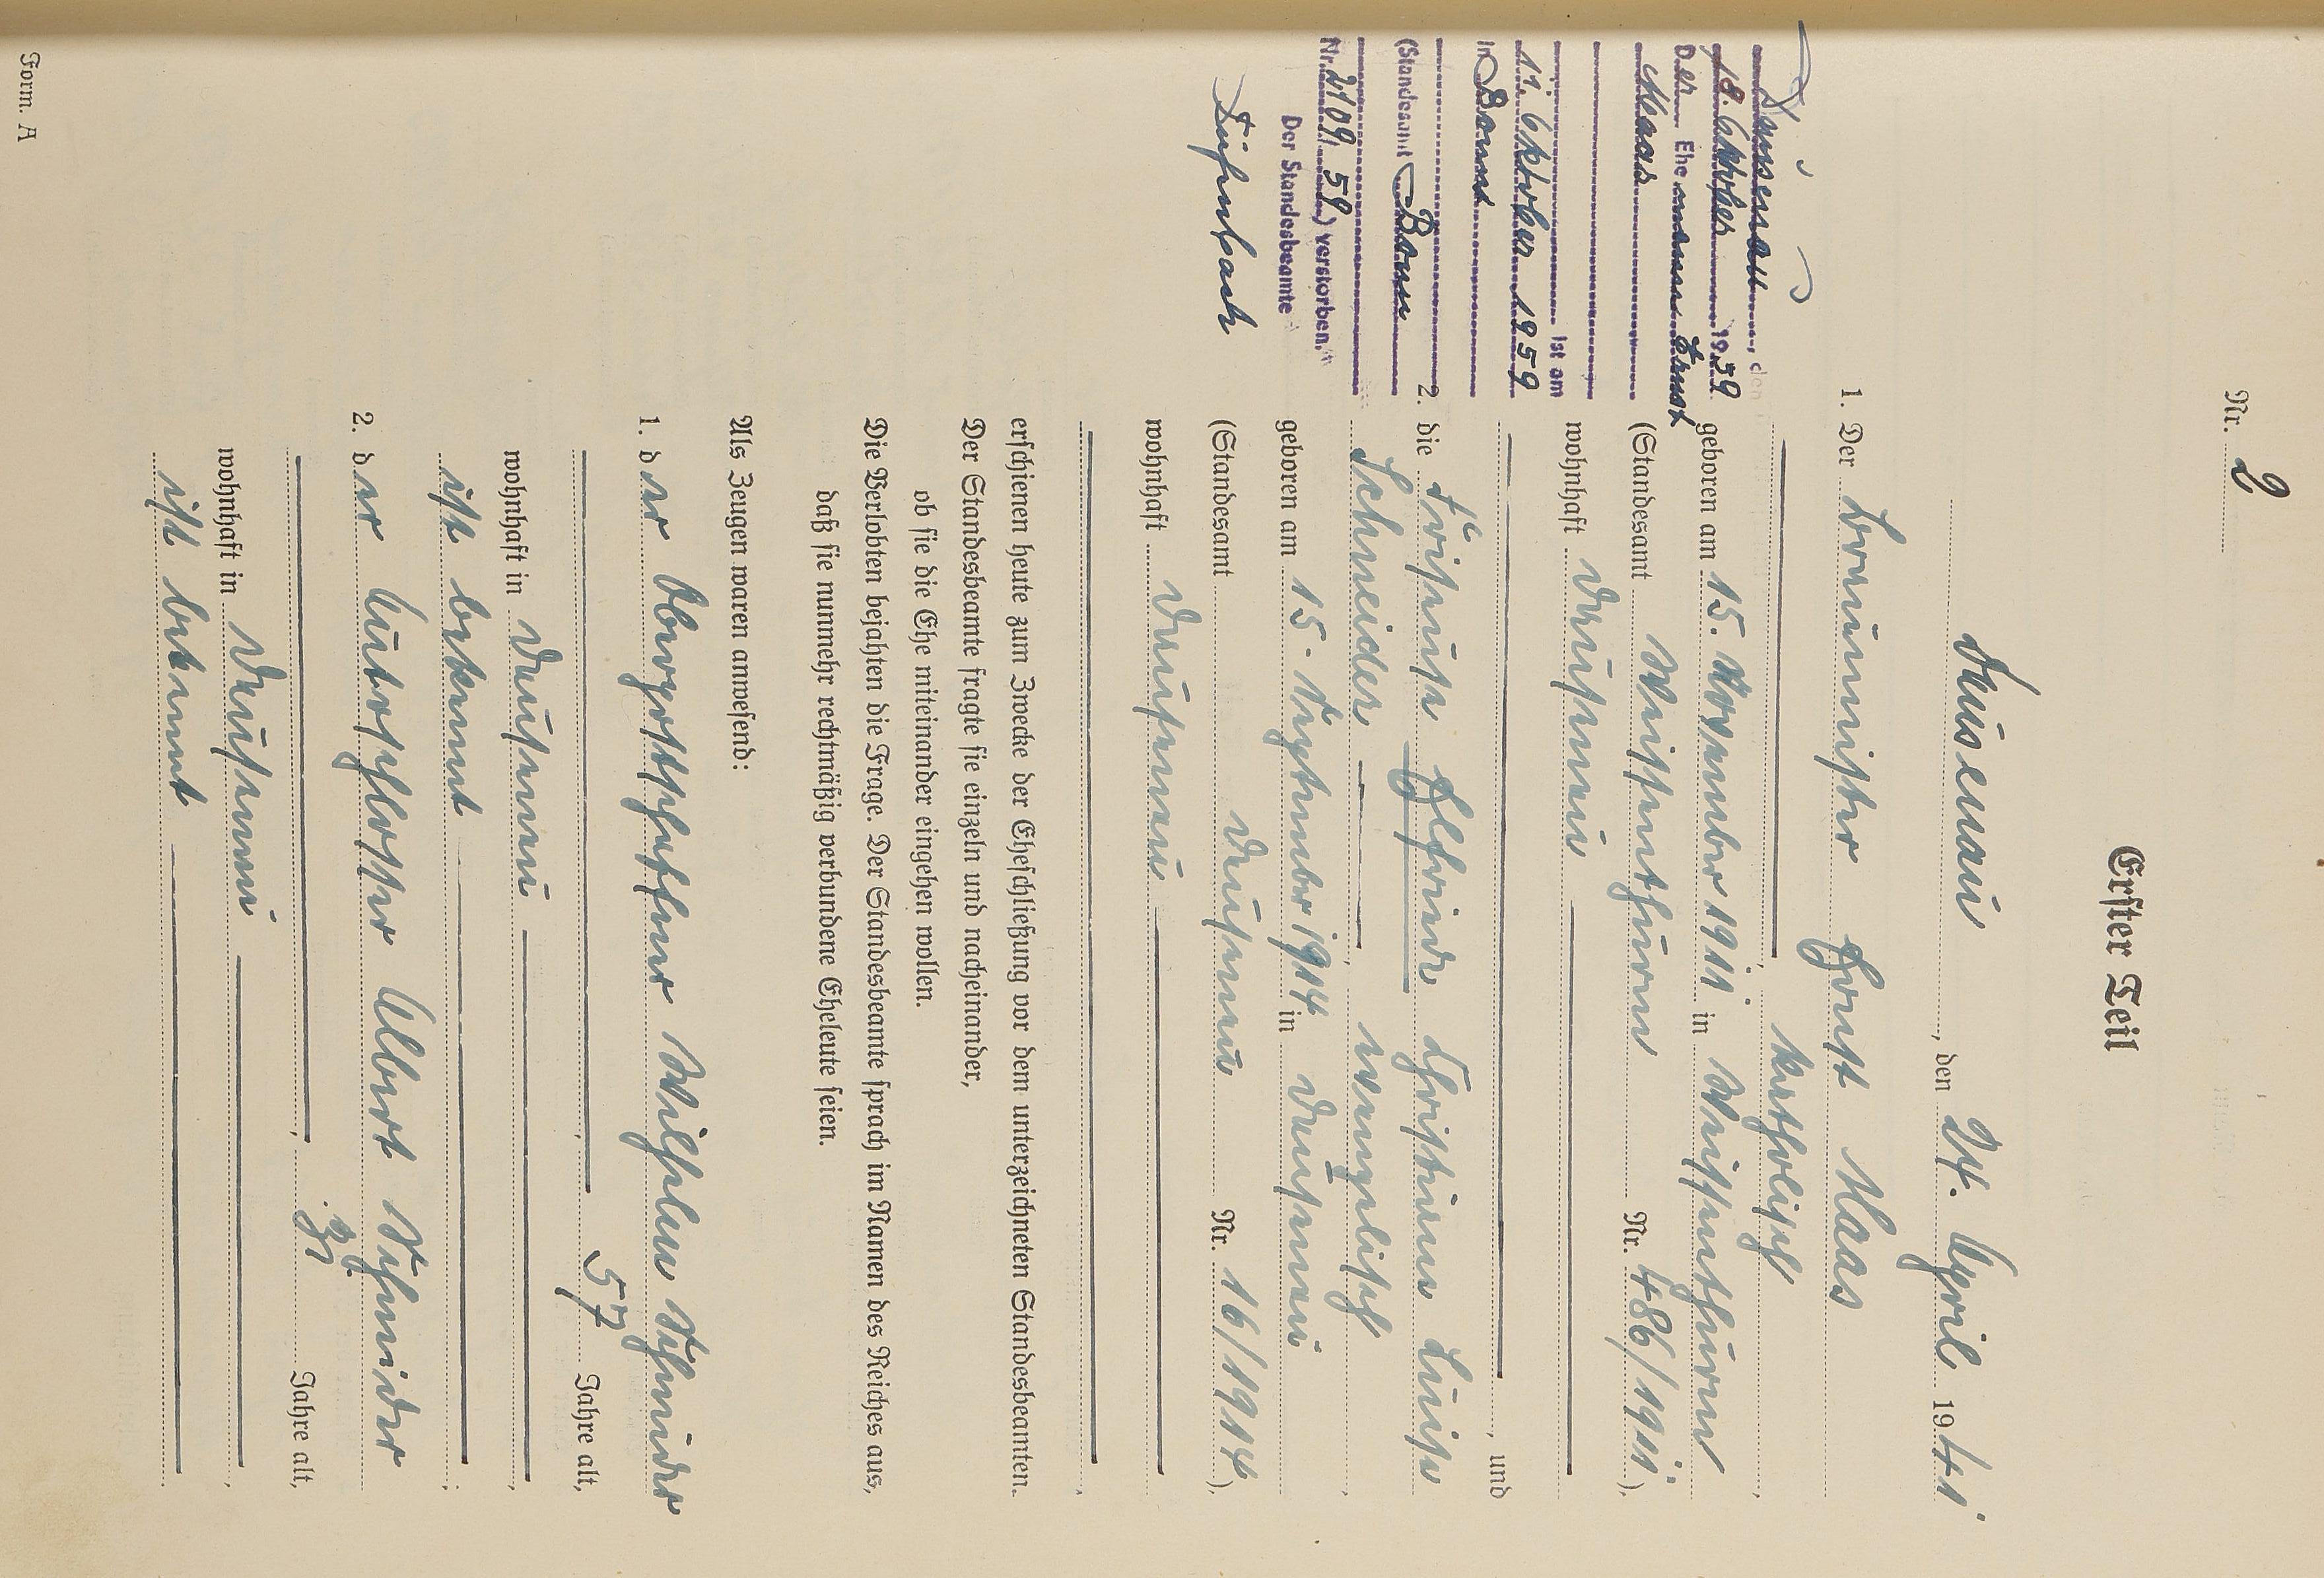 Nr. 2
Erster Teil
Dausenau, den 24. April 1941
1. Der Braumeister Ernst Maas
, katholisch,
geboren am 15. November 1911 in Weißenthurm
(Standesamt Weißenthurm Nr. 486/1911),
wohnhaft Dausenau
, und
2. die Friseuse Elfriede Christine Luise
Schneider, evangelisch,
geboren am 15. September 1914 in Dausenau
(Standesamt Dausenau Nr. 16/1914),
wohnhaft Dausenau
erschienen heute zum Zwecke der Eheschließung vor dem unterzeichneten Standesbeamten.
Der Standesbeamte fragte sie einzeln und nacheinander,
ob sie die Ehe miteinander eingehen wollen.
Die Verlobten bejahten die Frage. Der Standesbeamte sprach im Namen des Reiches aus,
daß sie nunmehr rechtmäßig verbundene Eheleute seien.
Als Zeugen waren anwesend:
1. der Oberpostschaffner Wilhelm Schneider
, 57 Jahre alt,
wohnhaft in Dausenau,
ist bekannt;
2. der Autoschlosser Albert Schneider
, Jahre alt,
wohnhaft in Dausenau,
ist bekannt
Dausenau, den
18. Oktober 1959
Der Ehemann Ernst
Maas
ist am
11. Oktober 1959
in Bonn
(Standesamt Bonn
Nr. 2109/59) verstorben.
Der Standesbeamte
Form. A